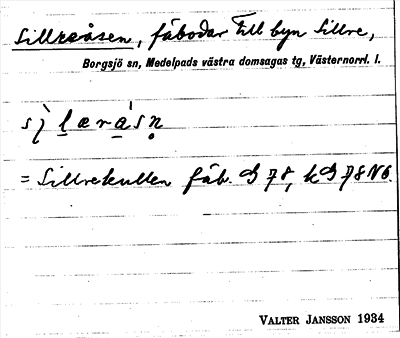 Sillreåsen, fäbodar till byn Sillre,
Borgsjö sn, Medelpads västra domsagas tg, Västernorrl. l.
= Sillrekullen fäb. G 78, kG 78 N6.
VALTER JANSSON 1934